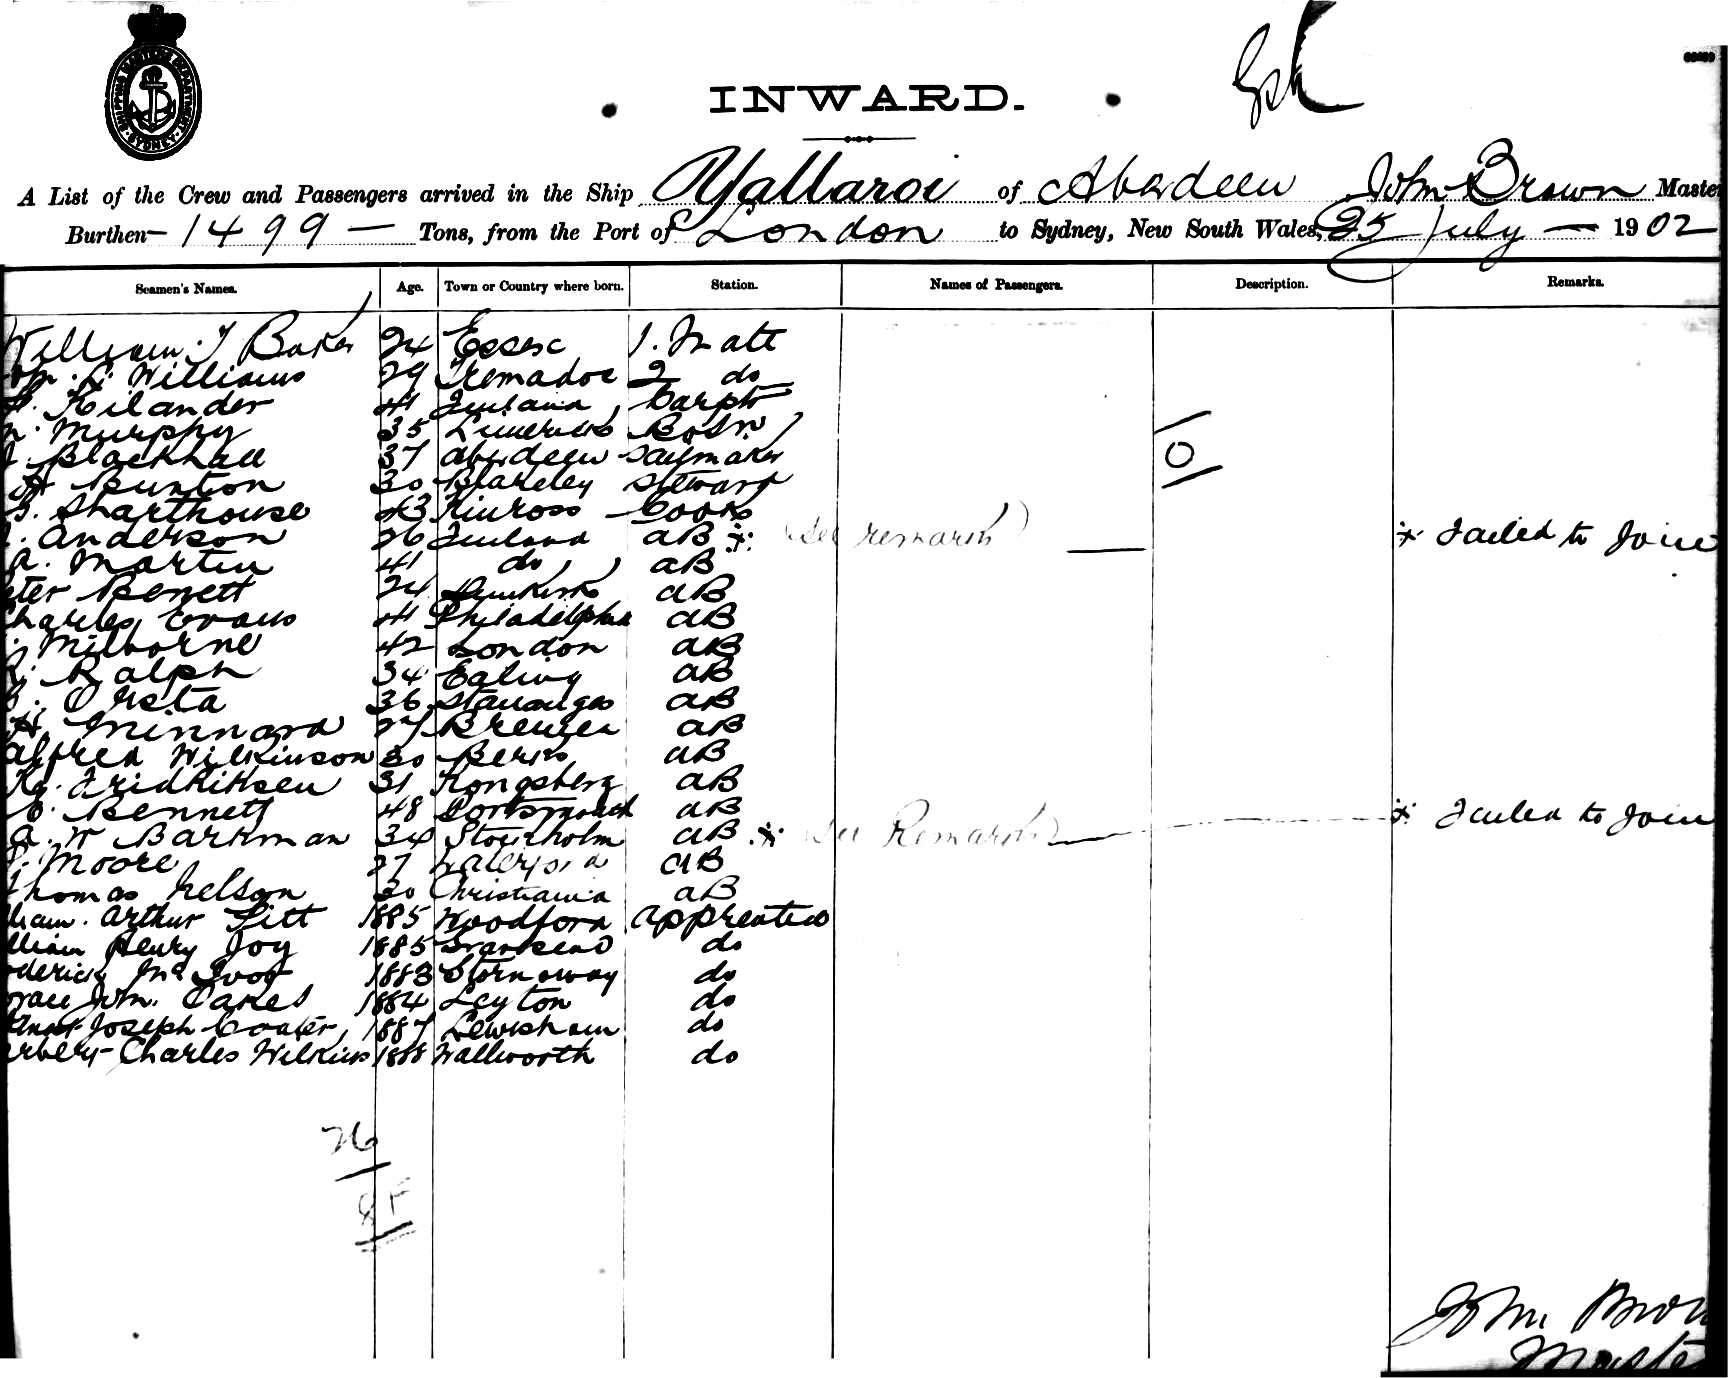 SHIPPING MASTERS DEPARTMENT SYDNEY
INWARD.
A List of the Crew and Passengers arrived in the Ship Yallaroi of Aberdeen John Brown Master
Burthen 1499 Tons, from the Port of London to Sydney, New South Wales, 25 July 1902
Seamen's Names. Age. Town or Country where born. Station. Names of Passengers. Description. Remarks.
William J Baker 24 Essex 1. Matt
Williams 29 Tremadoc 2 do
Kilander 41 Finland Carptr
Murphy 35 Limerick Bosn
Blackhall 37 Aberdeen Saymaker
A Bunton 30 Blakeley Steward
O
Sharthouse 43 Kinross Cook
Anderson 26 Finland aB (See remarks) Failed to Join
a. Martin 41 do aB
eter Benett 24 Dunkirk aB
harles Evans 41 Philadelphia aB
Milborne 42 London aB
Ralph 34 Ealing aB
Orsta 36 Stavanger aB
H Minnard 27 Bremen aB
alfred Wilkinson 30 Berks aB
Fridriksen 31 Kongsberg aB
Bennett 48 Portsmouth aB
a. W Barkman 34 Stockholm aB See Remarks Failed to Join
Moore 27 Waterford aB
Thomas Nelson 30 Christiania aB
lliam. Arthur Titt 1885 Woodford apprentice
lliam Henry Joy 1885 Gravesend do
oderick McIvor 1883 Stornoway do
orace John. Oakes 1884 Leyton do
Joseph Coates 1887 Lewisham do
erbert Charles Wilkins 1888 Wallworth do
26
John Brow
Maste